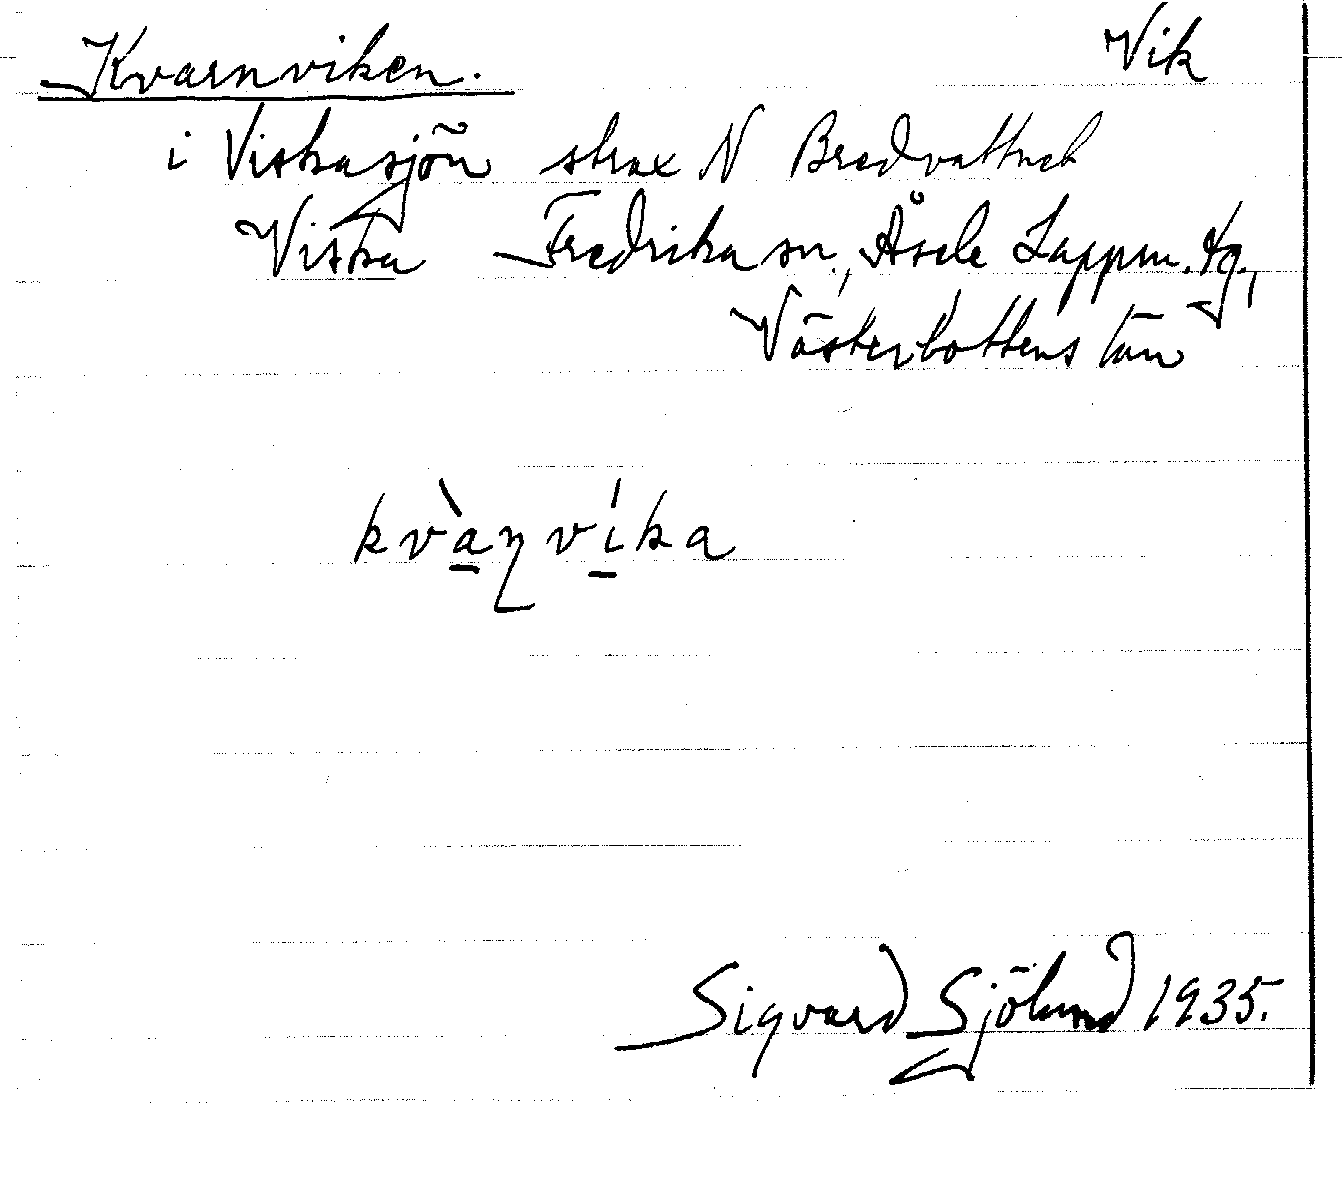 Kvarnviken. Vik
i Viskasjön strax N Bredvattnet
Viska Fredrika sn, Åsele Lappm. tg.,
Västerbottens län
kvàɳvíka
Sigvard Sjölund 1935.